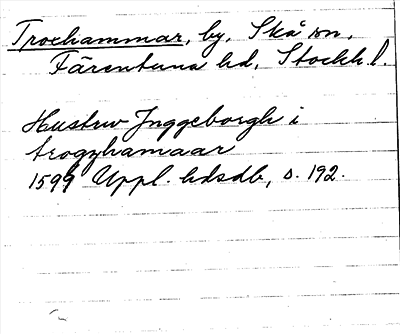 Troxhammar, by, Skå sn,
Färentuna hd, Stockh. l.
Hustrw Jnggeborgh i
trogzhamaar
1599 Uppl. hdsdb, s. 192.